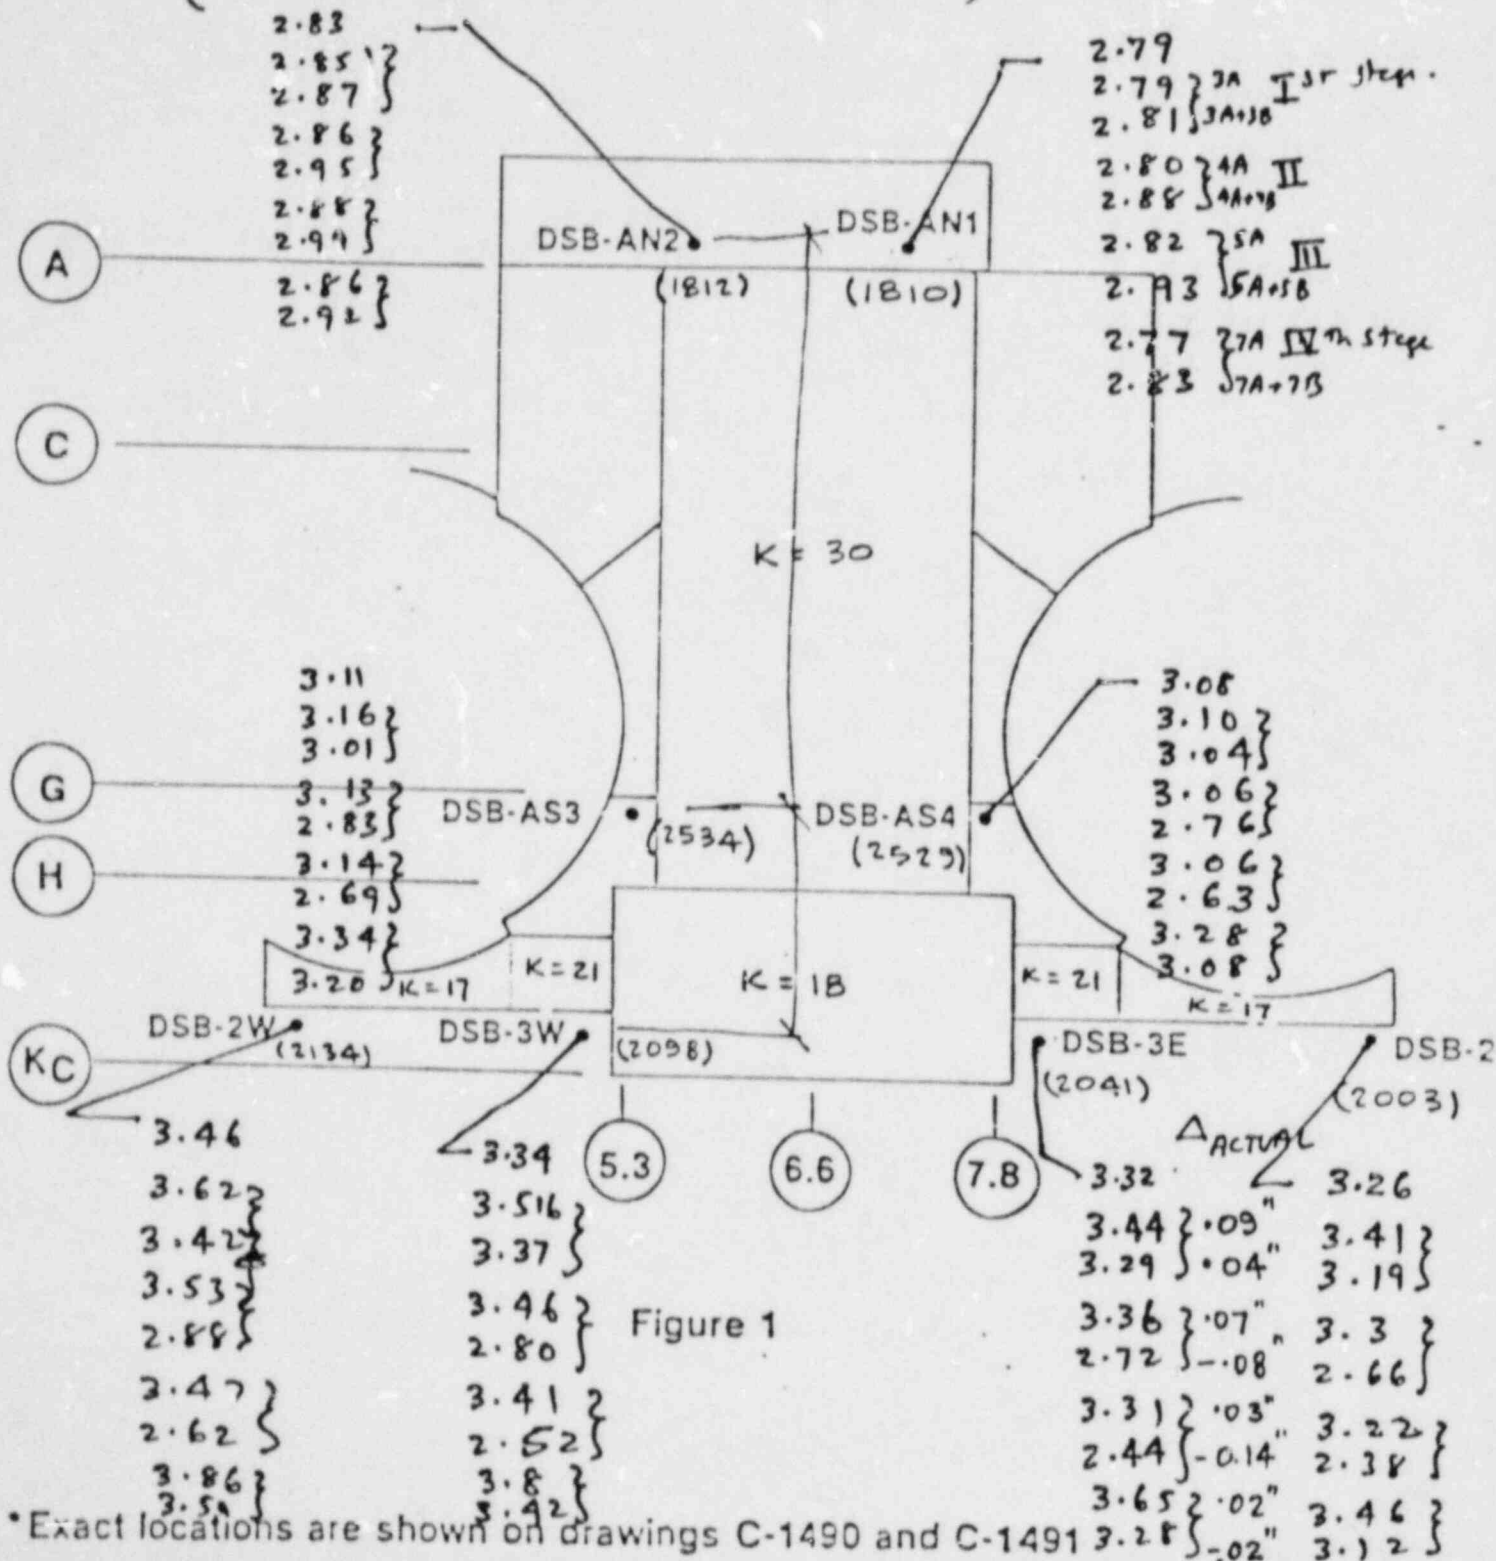 2.83
2.85
2.87
2.86
2.95
2.88
2.99
2.86
2.92
2.79
2.79 3A I st stage.
2.81 3A+3B
2.80 4A II
2.88 4A+4B
2.82 5A III
2.93 5A+5B
2.77 7A IV th stage
2.83 7A+7B
A
DSB-AN2
DSB-AN1
(1812)
(1810)
C
K = 30
3.11
3.16
3.01
3.13
2.83
3.14
2.69
3.34
3.20
3.08
3.10
3.04
3.06
2.76
3.06
2.63
3.28
3.08
G
DSB-AS3
(2534)
DSB-AS4
(2529)
H
K=17
K=21
K = 18
K = 21
K = 17
DSB-2W
(2134)
DSB-3W
(2098)
DSB-3E
(2041)
DSB-2
(2003)
KC
5.3
6.6
7.8
3.46
3.62
3.42
3.53
2.88
3.47
2.62
3.86
3.34
3.516
3.37
3.46
2.80
3.41
2.52
3.8
3.42
Figure 1
Δ ACTUAL
3.32
3.44 .09"
3.29 .04"
3.36 .07"
2.72 -.08"
3.31 .03"
2.44 -0.14"
3.65 .02"
3.28 -.02"
3.26
3.41
3.19
3.3
2.66
3.22
2.38
3.46
3.12
*Exact locations are shown on drawings C-1490 and C-1491